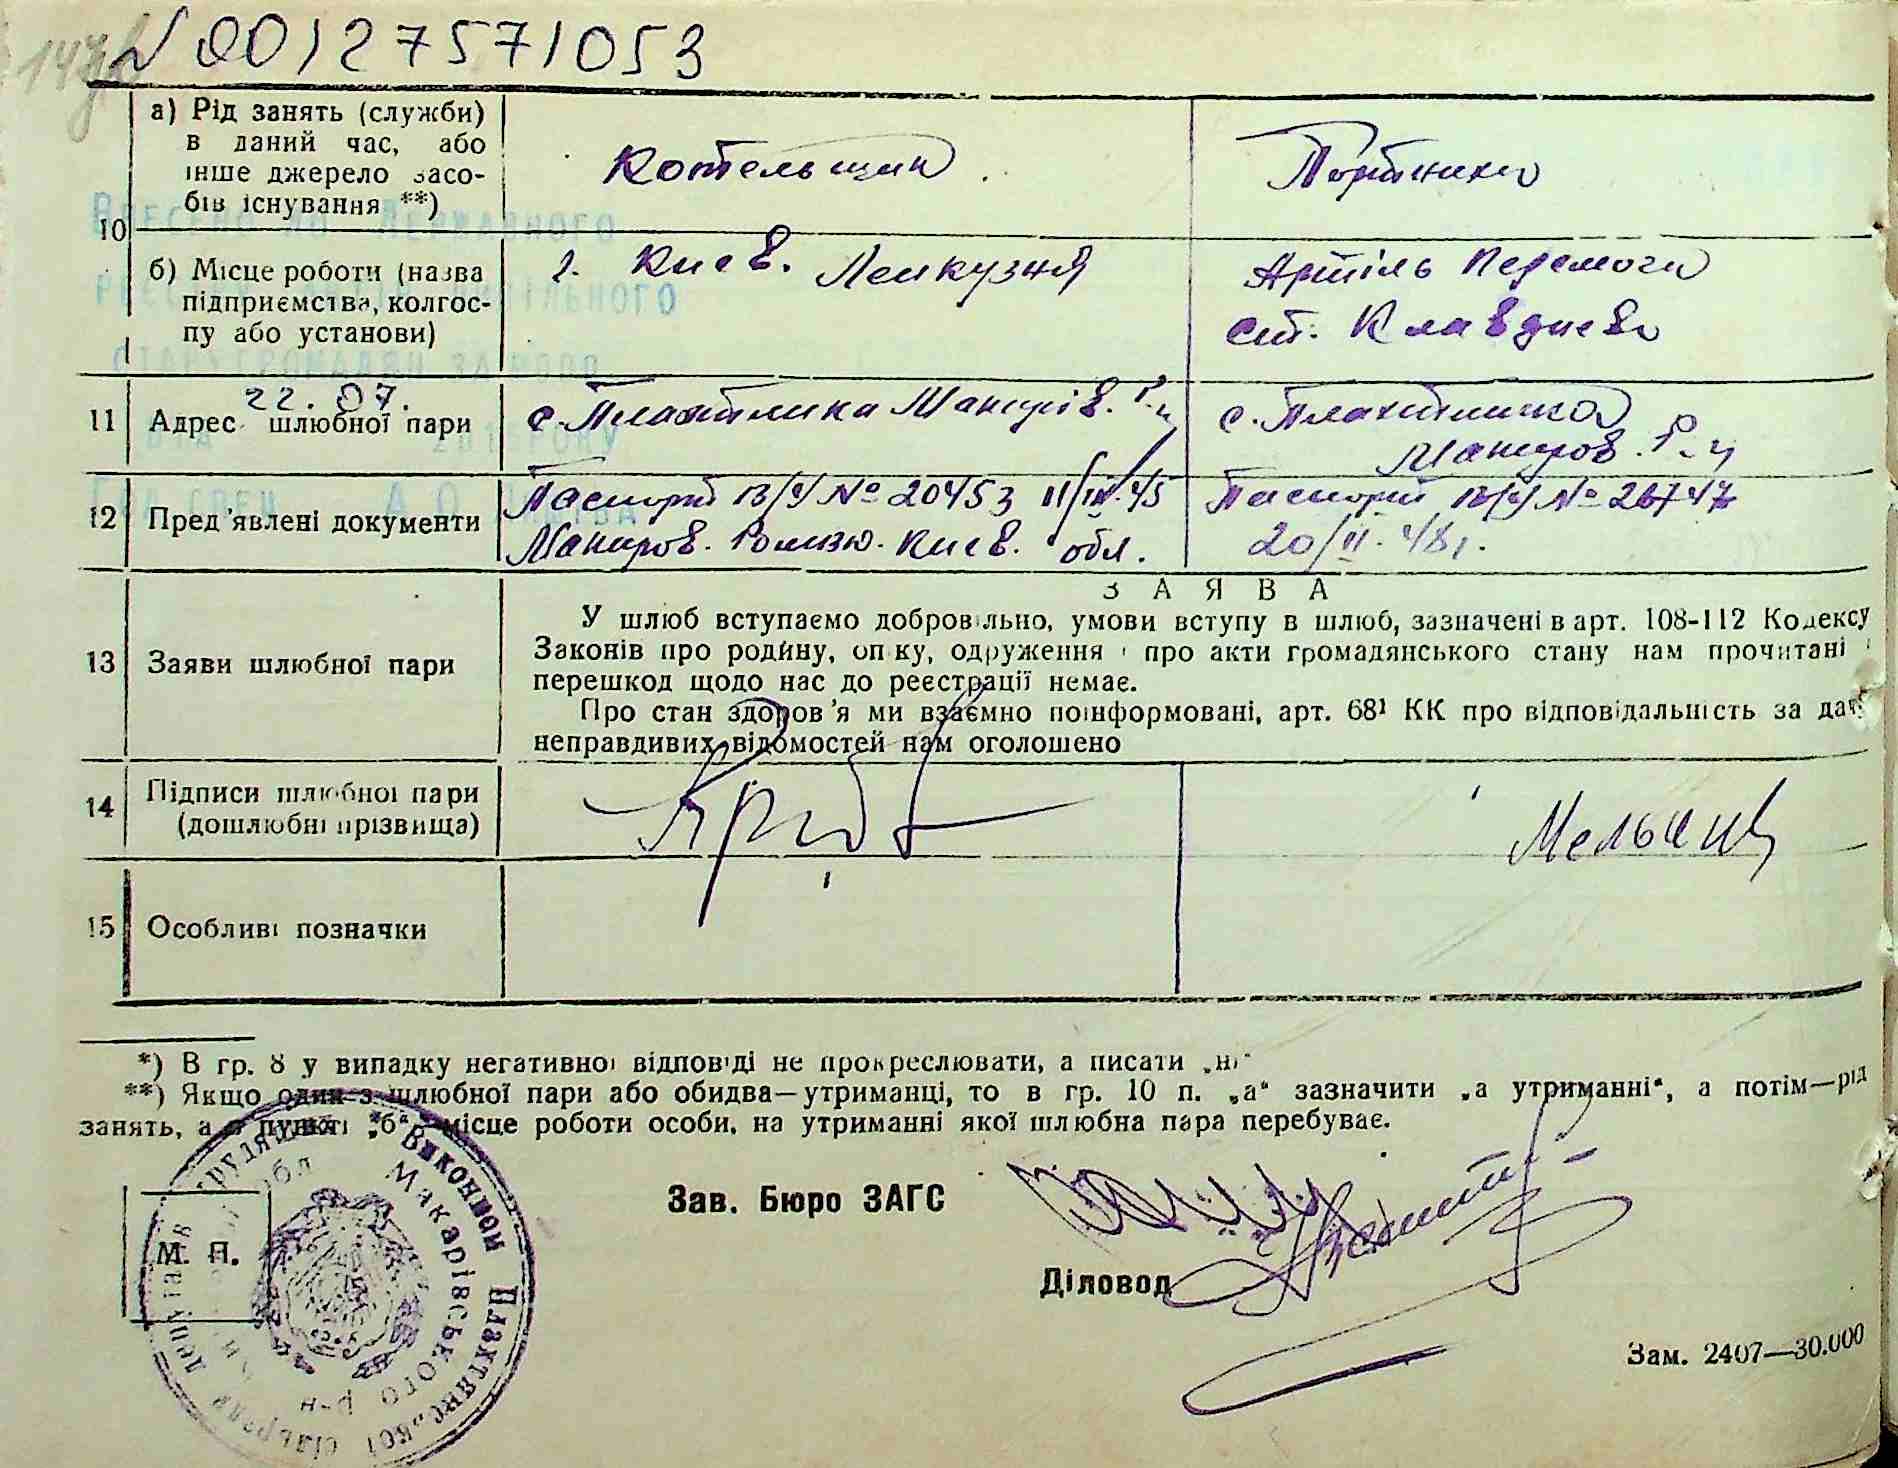 N 00127571053
а) Рід занять (служби)
в даний час, або
інше джерело засо-
бів існування **)
Котельщик
10
ВНЕСЕНО ДО ДЕРЖАВНОГО
б) Місце роботи (назва
підприємства, колгос-
пу або установи)
г. Киев. Ленкузня
Артіль Перемога
ст. Клавдиево
22.07.
11 Адрес шлюбної пари
с. Плахтянка Макарів. Р-н
с. Плахтянка
Макаров. Р-н
12 Пред'явлені документи
Паспорт № 20453 11/III-45
Макаров. Киев. обл.
Паспорт № 26747
20/II. 48г.
З А Я В А
13 Заяви шлюбної пари
У шлюб вступаємо добровільно, умови вступу в шлюб, зазначені в арт. 108-112 Кодексу
Законів про родину, опіку, одруження і про акти громадянського стану нам прочитані і
перешкод щодо нас до реєстрації немає.
Про стан здоров'я ми взаємно поінформовані, арт. 68¹ КК про відповідальність за дачу
неправдивих відомостей нам оголошено
14 Підписи шлюбної пари
(дошлюбні прізвища)
15 Особливі позначки
*) В гр. 8 у випадку негативної відповіді не прокреслювати, а писати „ні"
**) Якщо один з шлюбної пари або обидва—утриманці, то в гр. 10 п. „а" зазначити „а утриманні", а потім—рід
занять, а в пункті „б" місце роботи особи, на утриманні якої шлюбна пара перебуває.
Виконком Плахтянської сільради депутатів трудящих
Макарівського р-н
М. П.
Зав. Бюро ЗАГС
Діловод
Зам. 2407—30.000